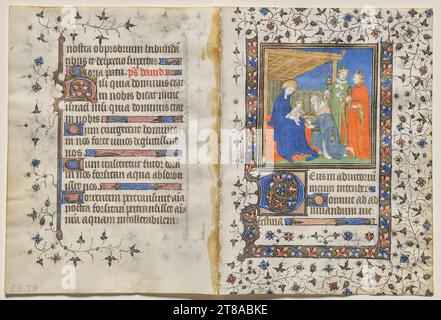 nostra obprobrium habundā
nobis et despectio superbis
Gloria patri. ps david
Nisi quia dominus erat
in nobis dicat nunc
nisi quia dominus erat
in nobis
Cum exurgerent homines
in nos forte vivos deglutissent
nos
forsitan aqua absorbu
isset nos
Torrentem pertransivit aīa
nra forsitan pertransisset aīa
nra aquam intollerabilem.
Deus in adiutorium
meum intende.
Domine ad ad
iuvandum me
festina
55.79
alamy
Image ID: 2T8ABKE
www.alamy.com